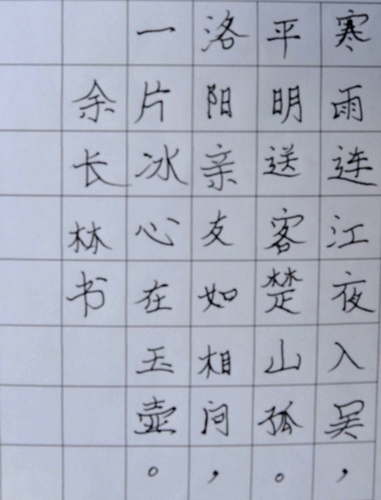 寒雨连江夜入吴，
平明送客楚山孤。
洛阳亲友如相问，
一片冰心在玉壶。
余长林书